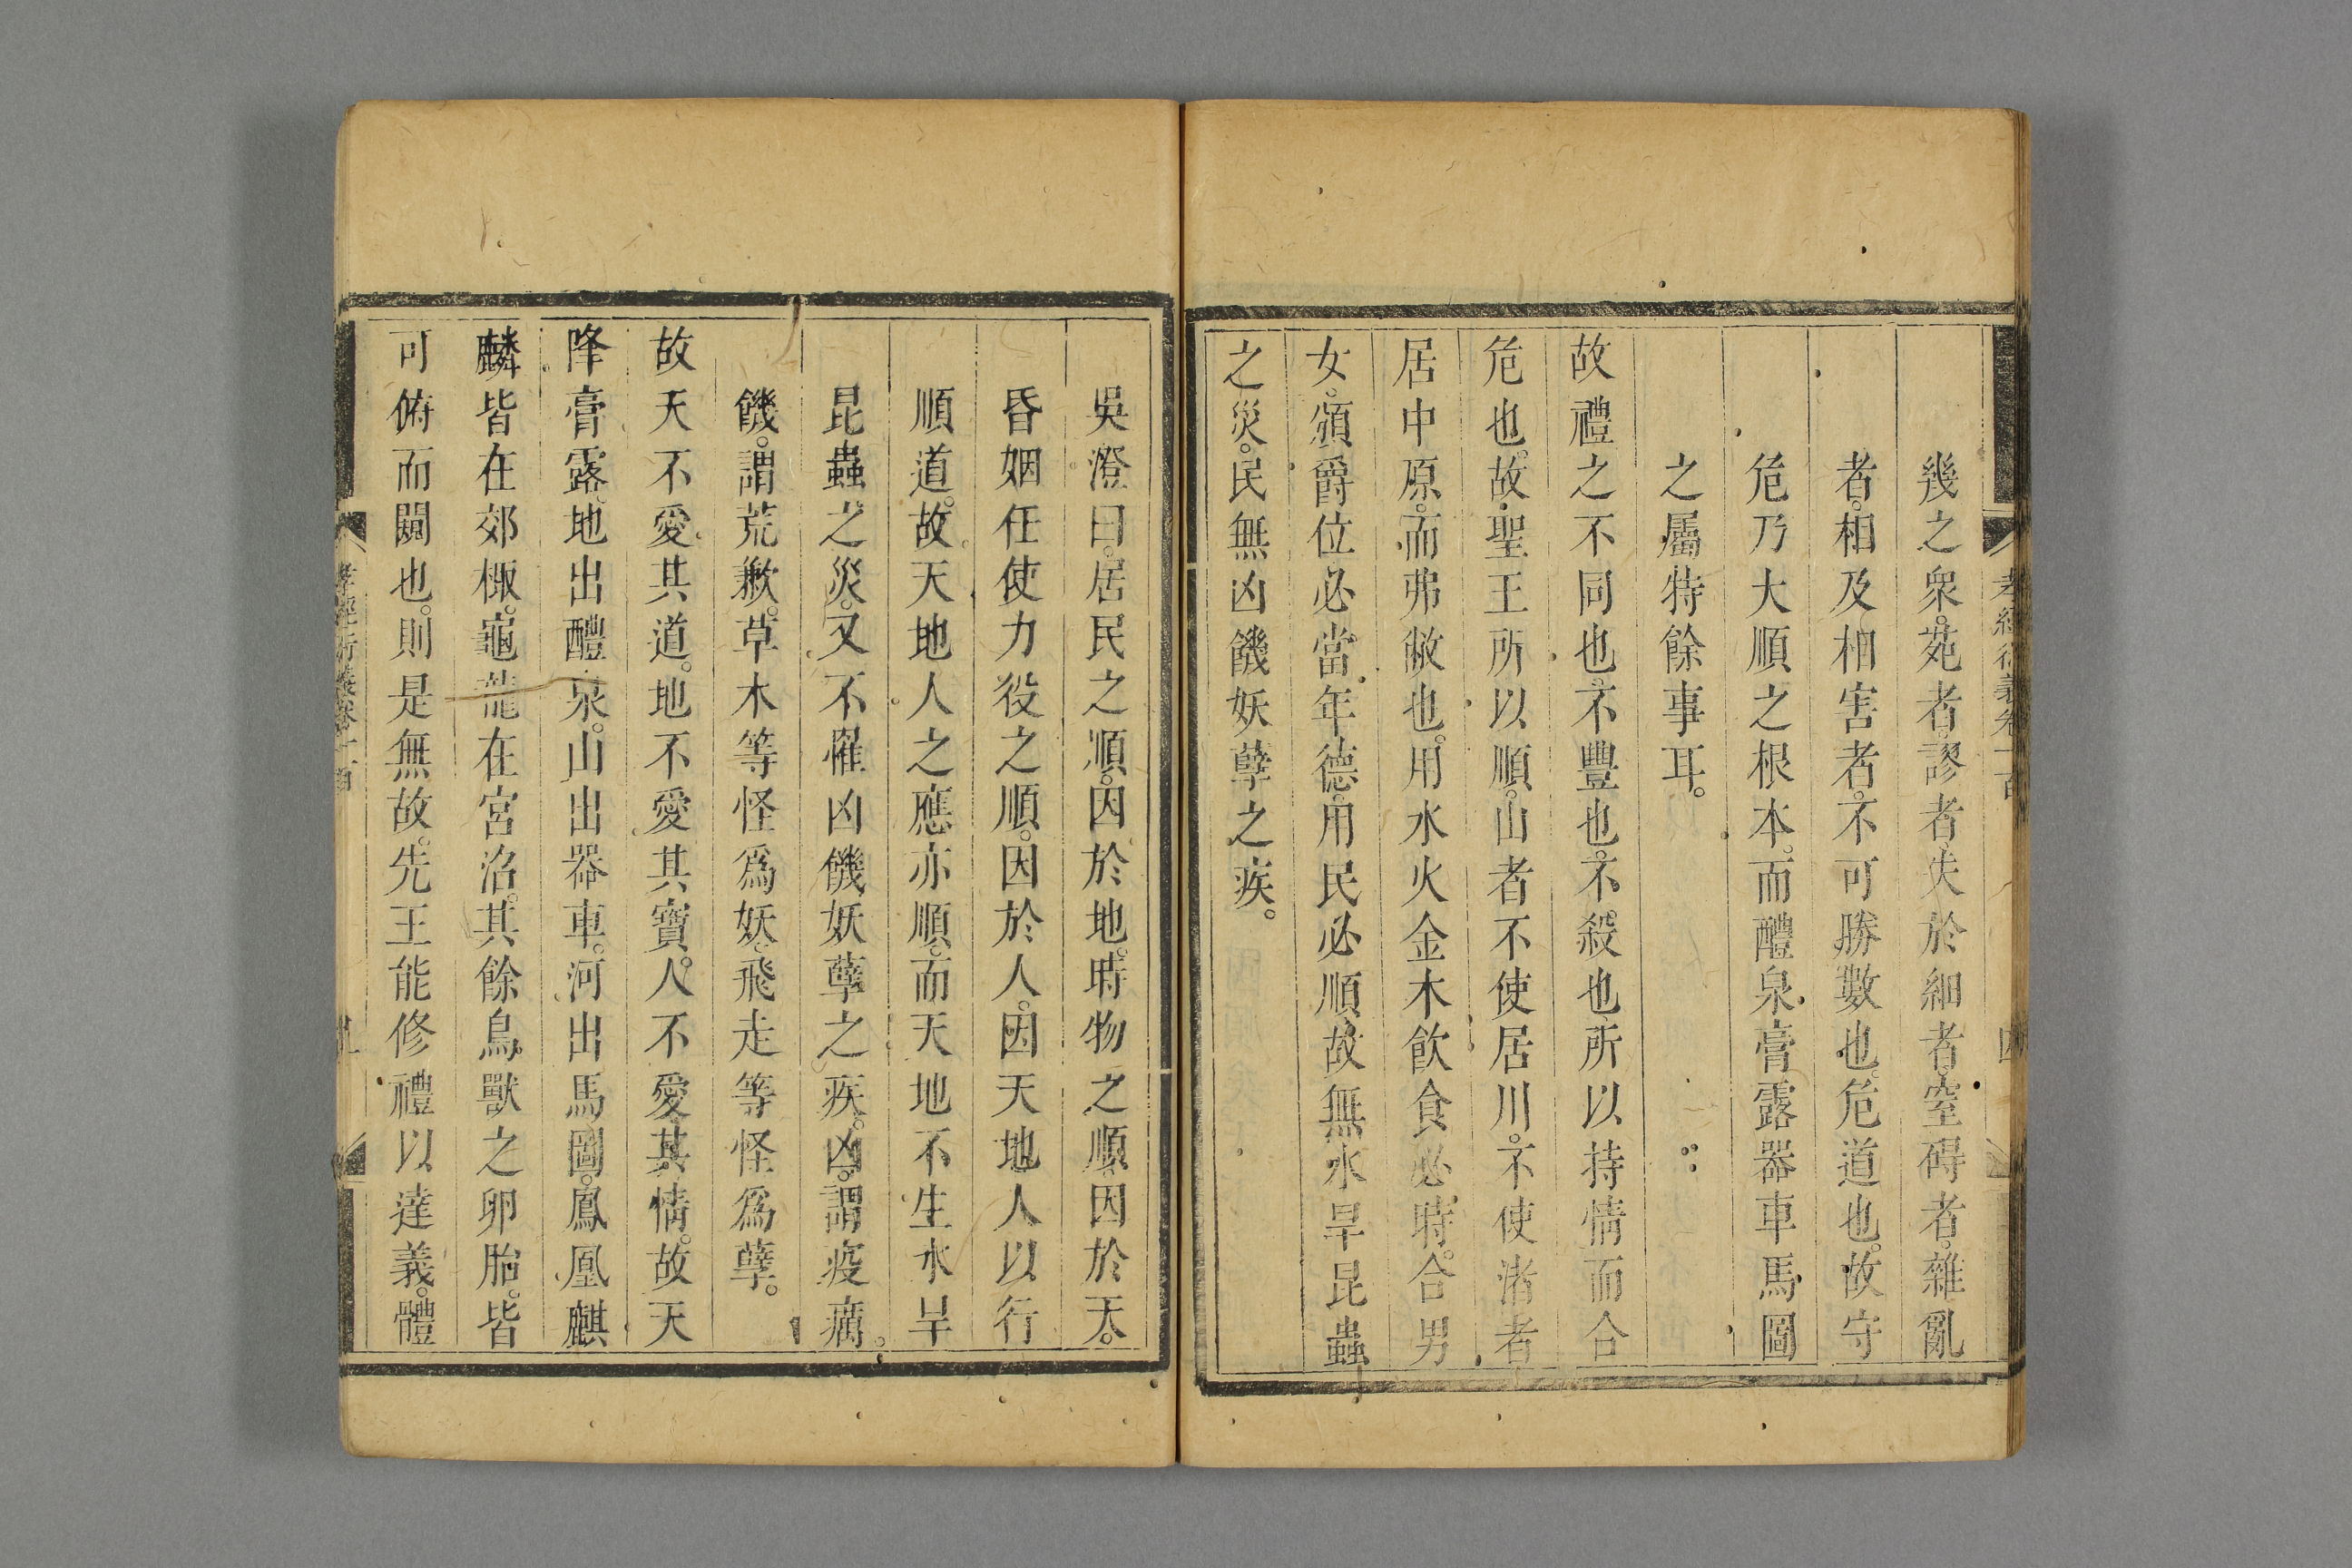 幾之衆。苑者。謬者。失於細者。窒碍者。雜亂
者。相及相害者。不可勝數也。危道也。故守
危乃大順之根本。而醴泉膏露器車馬圖
之屬特餘事耳。
故禮之不同也。不豐也。不殺也。所以持情而合
危也。故聖王所以順。山者不使居川。不使渚者
居中原。而弗敝也。用水火金木飲食必時。合男
女。頒爵位必當年德。用民必順。故無水旱昆蟲
之災。民無凶饑妖孽之疾。
吳澄曰。居民之順。因於地。時物之順。因於天。
昏姻任使力役之順。因於人。因天地人以行
順道。故天地人之應亦順。而天地不生水旱
昆蟲之災。又不罹凶饑妖孽之疾。凶。謂疫癘。
饑。謂荒歉。草木等怪爲妖。飛走等怪爲孽。
故天不愛其道。地不愛其寶。人不愛其情。故天
降膏露。地出醴泉。山出器車。河出馬圖。鳳凰麒
麟皆在郊棷。龜龍在宮沼。其餘鳥獸之卵胎。皆
可俯而闚也。則是無故。先王能修禮以達義。體